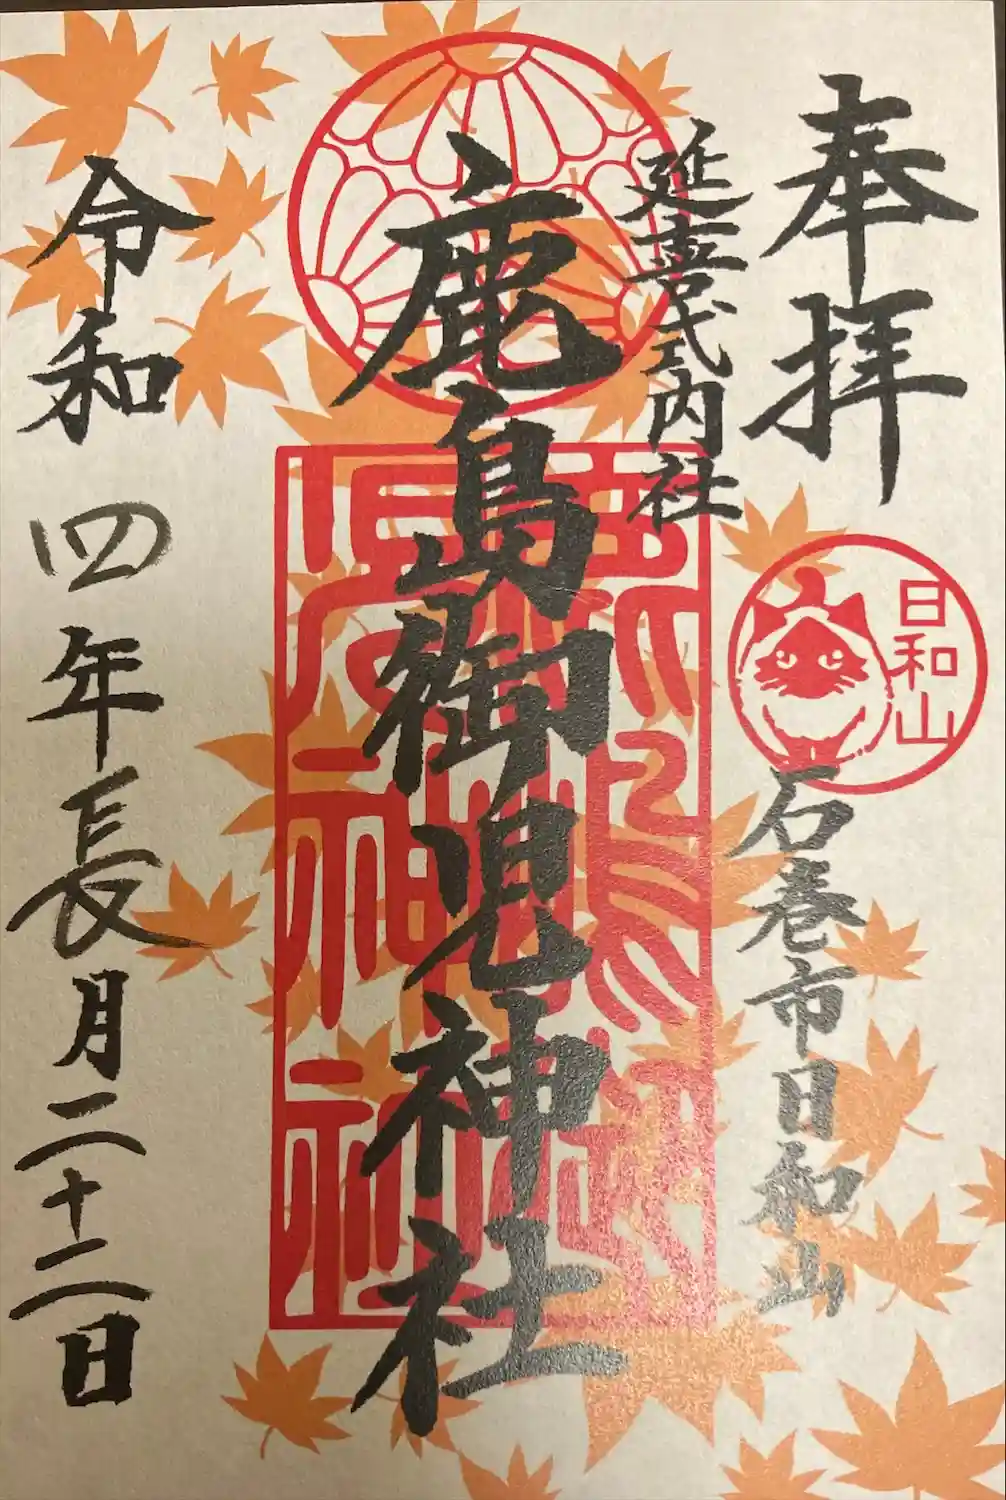 奉拝
日和山
石巻市日和山
延喜式内社
鹿島御児神社
令和四年長月二十二日